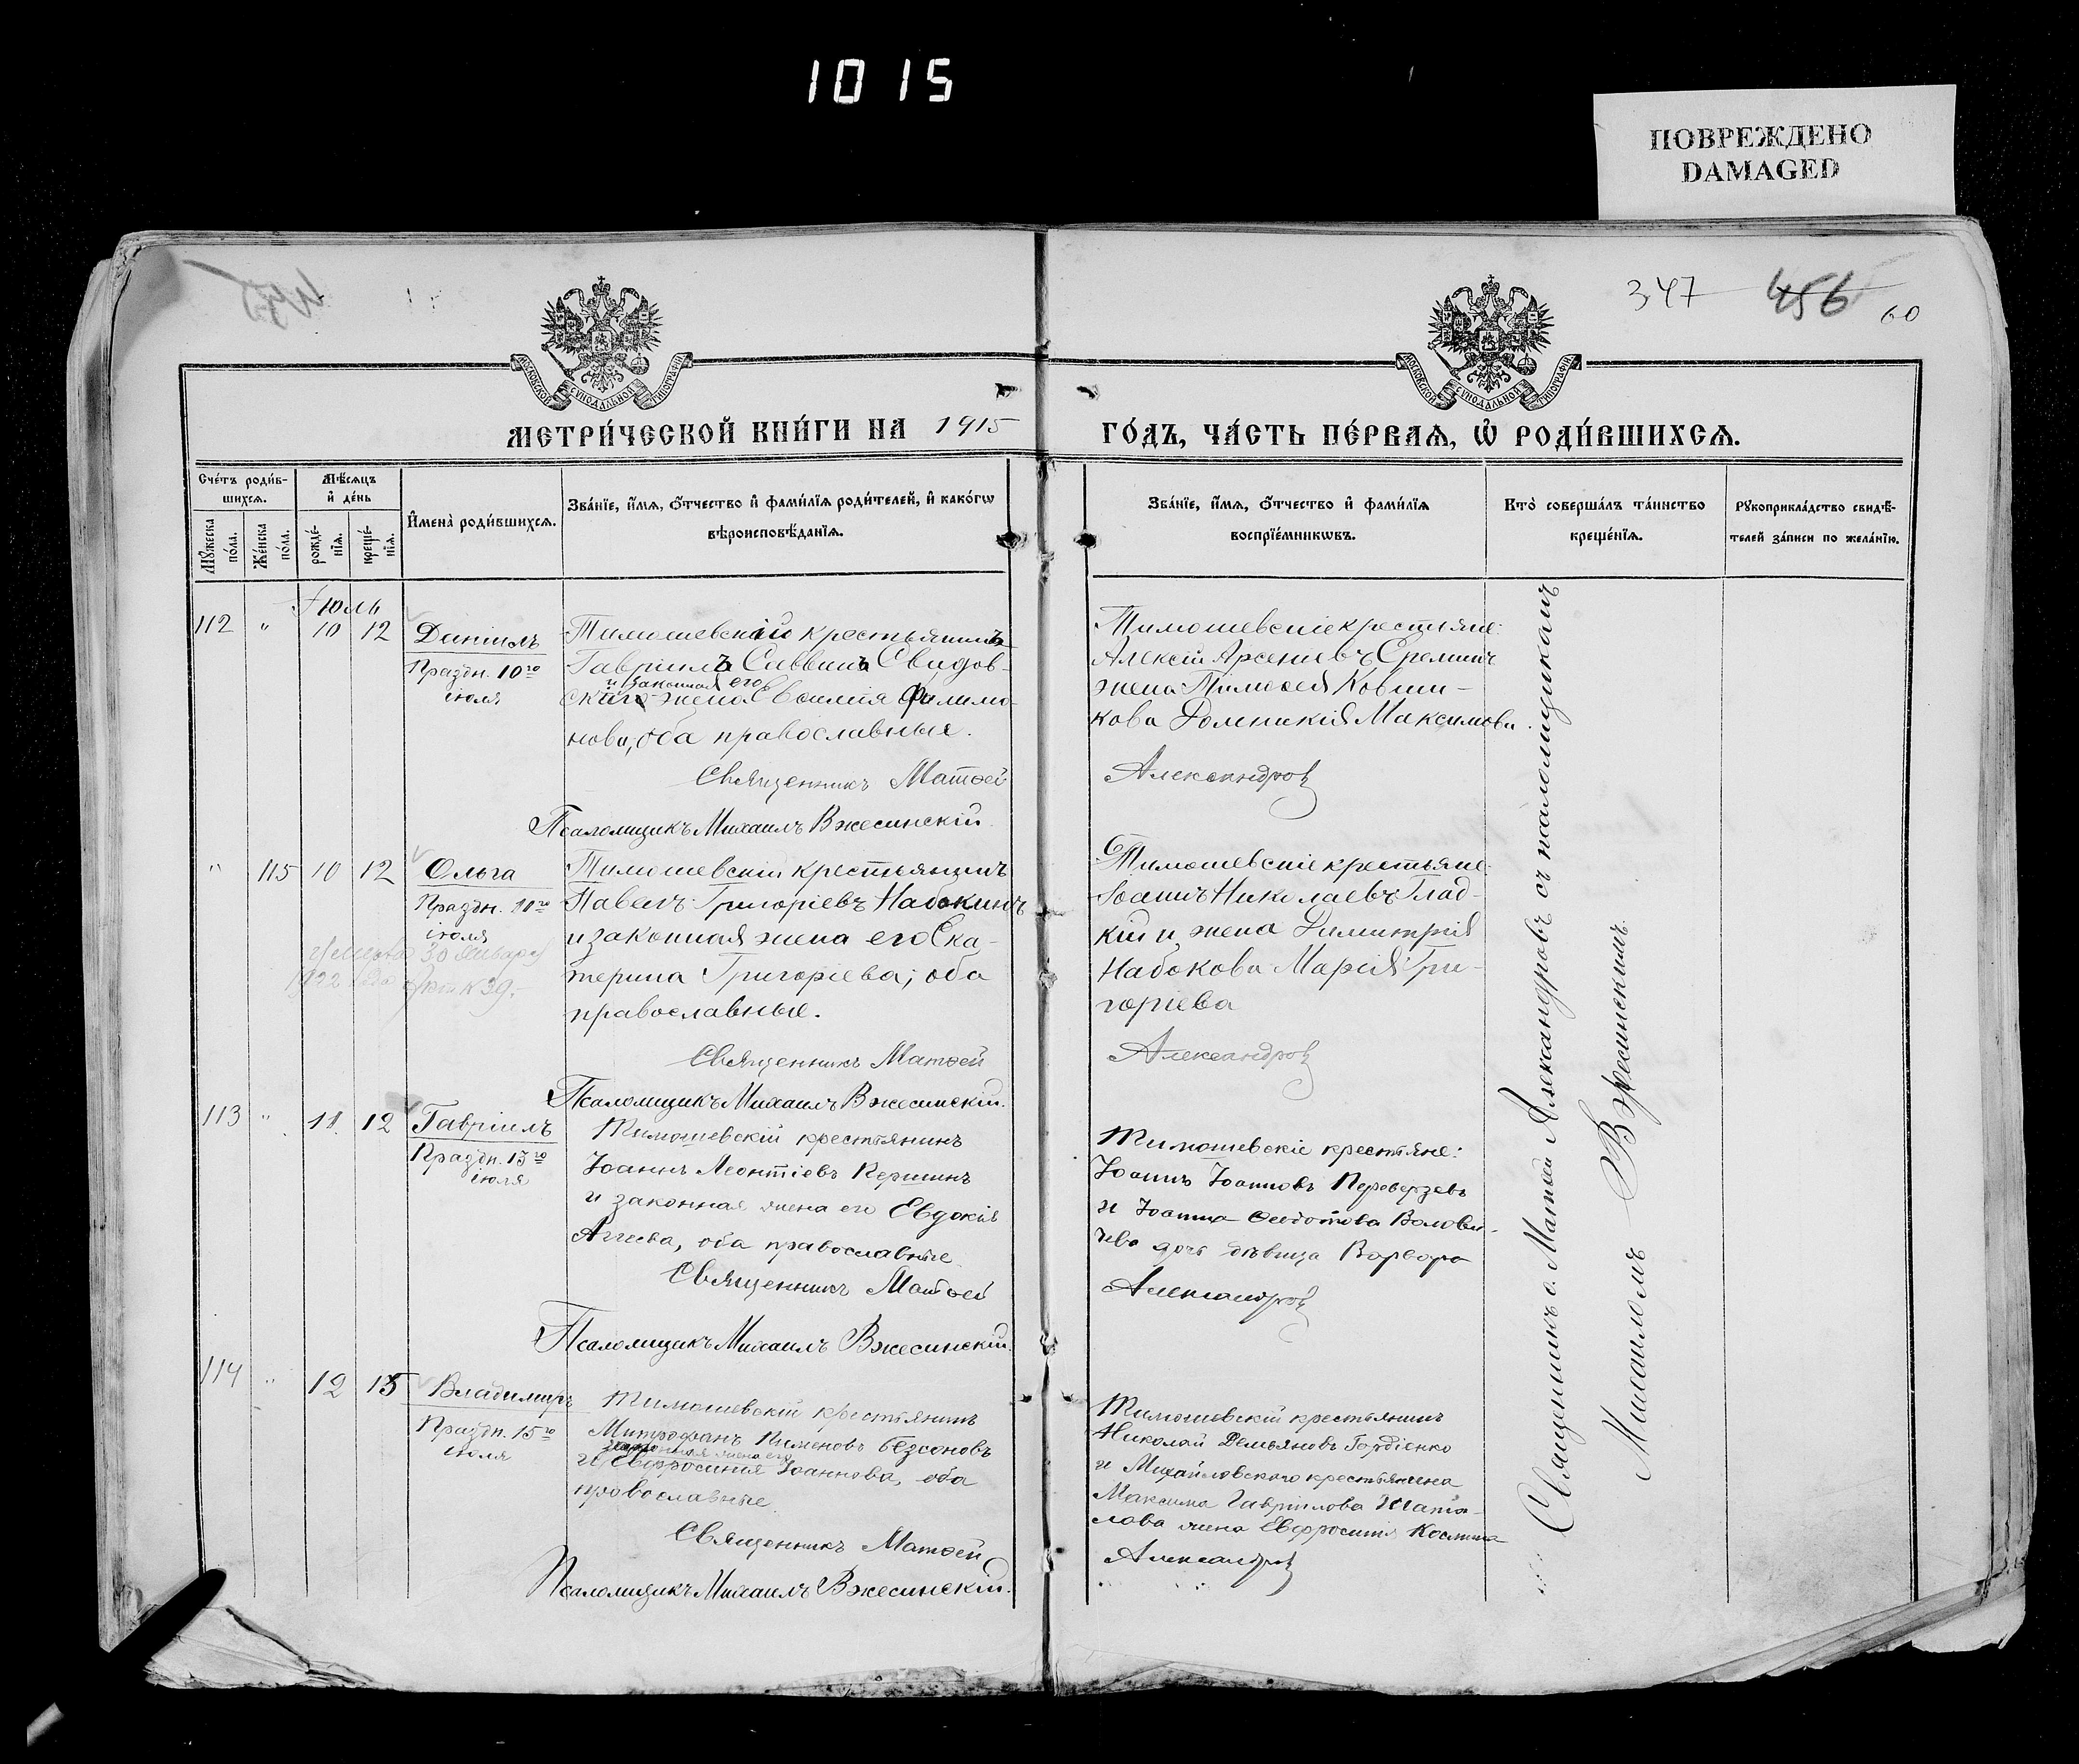 1015
ПОВРЕЖДЕНО
DAMAGED
347 456 60
МОСКОВСКОЙ СѴНОДАЛЬНОЙ ТИПОГРАФІИ
МОСКОВСКОЙ СѴНОДАЛЬНОЙ ТИПОГРАФІИ
МЕТРИ́ЧЕСКОЙ КНИ́ГИ НА 1915
ГО́ДЪ, ЧА́СТЬ ПЕ́РВАѦ, Ѡ҆ РОДИ́ВШИХСѦ.
Сче́тъ роди́в-
шихсѧ.
Мꙋ́жеска по́ла.
Же́нска по́ла.
Мѣ́сѧцъ
и҆ де́нь
рожде́-
нїѧ.
креще́-
нїѧ.
И҆мена̀ роди́вшихсѧ.
Зва́нїе, и҆́мѧ, ѻ҆́тчество и҆ фами́лїѧ роди́телей, и҆ како́гѡ
вѣроисповѣ́данїѧ.
Зва́нїе, и҆́мѧ, ѻ҆́тчество и҆ фами́лїѧ
воспрїе́мникѡвъ.
Кто̀ соверша́лъ та́инство
креще́нїѧ.
Рꙋкоприкла́дство свидѣ́-
телей за́писи по жела́нїю.
Іюль
112 " 10 12 Даніилъ
Праздн. 10го
іюля
Тимошевскій крестьянинъ
Гавріилъ Саввинъ Свидов-
и законная его
скій жена Евфимія Филимо-
нова, оба православные.
Священникъ Матѳей
Псаломщикъ Михаилъ Вжесинскій
Тимошевскіе крестьяне:
Алексій Арсеніевъ Ереминъ
жена Тимоѳея Ковши-
кова Домникія Максимова.
Александров
" 115 10 12 Ольга
Праздн. 11го
іюля
Умерла 30 января
1922 года Акт N 39.
Тимошевскій крестьянинъ
Павелъ Григоріевъ Набокинъ
и законная жена его Ека-
терина Григоріева; оба
православные.
Священникъ Матѳей
Псаломщикъ Михаилъ Вжесинскій.
Тимошевскіе крестьяне:
Іоаннъ Николаевъ Глад-
кій и жена Димитрія
Набокова Марія Гри-
горіева
Александров
113 " 11. 12 Гавріилъ
Праздн. 13го
іюля
Тимошевскій крестьянинъ
Іоаннъ Леонтіевъ Першинъ
и законная жена его Евдокія
Аггеева, оба православные
Священникъ Матѳей
Псаломщикъ Михаилъ Вжесинскій.
Тимошевскіе крестьяне:
Іоаннъ Іоанновъ Переверзевъ
и Іоанна Ѳеодотова Волови-
чева дочь дѣвица Варвара
Александров
114 " 12 15 Владимиръ
Праздн. 15го
іюля
Тимошевскій крестьянинъ
Митрофанъ Пименовъ Безсоновъ
законная жена его
и Евфросинія Іоаннова, оба
православные
Священникъ Матѳей
Псаломщикъ Михаилъ Вжесинскій.
Тимошевскій крестьянинъ
Николай Демьяновъ Гордіенко
и Михайловского крестьянина
Максима Гавріилова Шата-
лова жена Евфросинія Космина
Александров
Священникъ о. Матѳей Александровъ съ псаломщикомъ
Михаиломъ Вжесинскимъ.